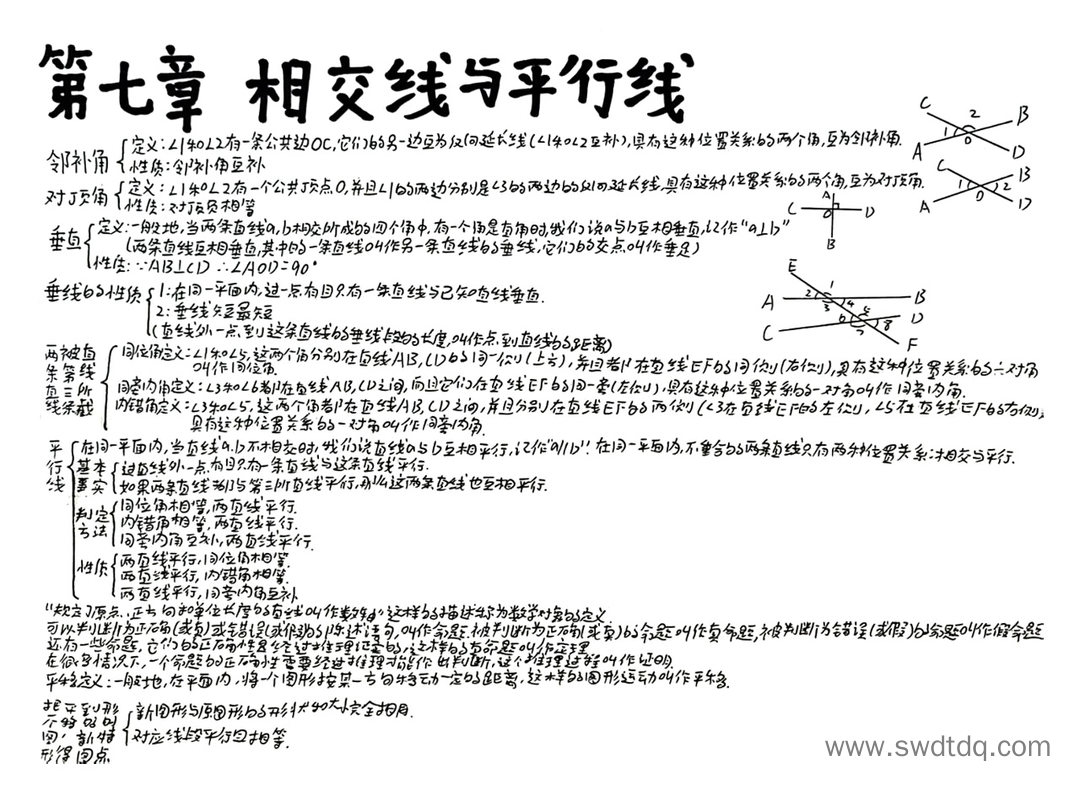 第七章 相交线与平行线
邻补角
定义:∠1和∠2有一条公共边OC,它们的另一边互为反向延长线(∠1和∠2互补),具有这种位置关系的两个角,互为邻补角.
性质:邻补角互补
对顶角
定义:∠1和∠2有一个公共顶点O,并且∠1的两边分别是∠3的两边的反向延长线,具有这种位置关系的两个角,互为对顶角.
性质:对顶角相等
垂直
定义:一般地,当两条直线a,b相交所成的四个角中,有一个角是直角时,我们说a与b互相垂直,记作"a⊥b"
(两条直线互相垂直,其中的一条直线叫作另一条直线的垂线,它们的交点叫作垂足)
性质:∵AB⊥CD ∴∠AOD=90°
垂线的性质
1:在同一平面内,过一点有且只有一条直线与已知直线垂直.
2:垂线段最短
(直线外一点到这条直线的垂线段的长度,叫作点到直线的距离)
两条直线被第三条直线所截
同位角定义:∠1和∠5,这两个角分别在直线AB,CD的同一侧(上方),并且都在直线EF的同侧(右侧),具有这种位置关系的一对角
叫作同位角.
同旁内角定义:∠3和∠6都在直线AB,CD之间,而且它们在直线EF的同一旁(左侧),具有这种位置关系的一对角叫作同旁内角.
内错角定义:∠3和∠5,这两个角都在直线AB,CD之间,并且分别在直线EF的两侧(∠3在直线EF的左侧,∠5在直线EF的右侧),
具有这种位置关系的一对角叫作同旁内角.
平行线
在同一平面内,当直线a.b不相交时,我们说直线a与b互相平行,记作"a//b".在同一平面内,不重合的两条直线只有两种位置关系:相交与平行.
基本事实
过直线外一点有且只有一条直线与这条直线平行.
如果两条直线都与第三条直线平行,那么这两条直线也互相平行.
判定方法
同位角相等,两直线平行.
内错角相等,两直线平行.
同旁内角互补,两直线平行.
性质
两直线平行,同位角相等.
两直线平行,内错角相等.
两直线平行,同旁内角互补
"规定了原点、正方向和单位长度的直线叫作数轴"这样的描述称为数学对象的定义
可以判断为正确(或真)或错误(或假)的陈述语句,叫作命题.被判断为正确(或真)的命题叫作真命题,被判断为错误(或假)的命题叫作假命题
还有一些命题,它们的正确性是经过推理证实的,这样的真命题叫作定理
在很多情况下,一个命题的正确性需要经过推理才能作出判断,这个推理过程叫作证明.
平移定义:一般地,在平面内,将一个图形按某一方向移动一定的距离,这样的图形运动叫作平移.
新图形与原图形的形状和大小完全相同.
对应线段平行且相等.
C 2 B
1 O
A D
C B
1 O 2
A D
A
C O D
B
E
A 2 1 B
3 4
C 6 5 D
7 8
F
www.swdtdq.com